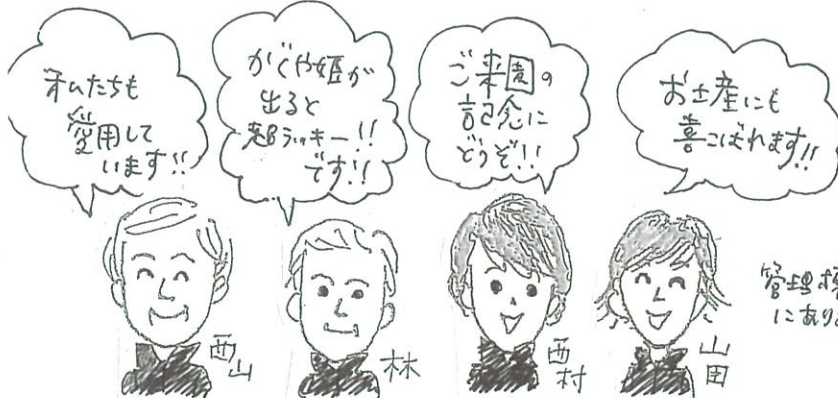 私たちも
愛用して
います!!
かぐや姫が
出ると
超ラッキー!!
です!!
ご来園の
記念に
どうぞ!!
お土産にも
喜こばれます!!
西山
林
西村
山田
管理棟
にあり